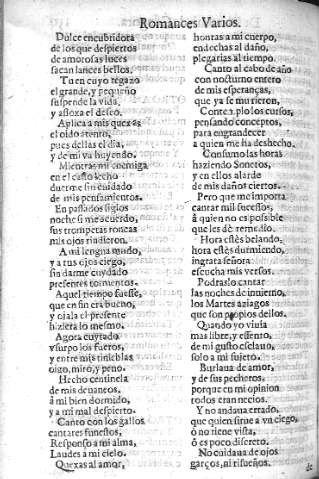 Romances Varios.
Dulce encubridora
de los que despiertos
de amorosas luces
sacan lances bellos.
Tu en cuyo regazo
el grande, y pequeño
suspende la vida,
y afloxa el deseo.
Aplica a mis quexas
el oido atento,
pues dellas el dia,
y de mi va huyendo.
Mientras mi enemiga
en el casto lecho
duerme sin cuidado
de mis pensamientos.
En passados siglos
noche si me acuerdo,
sus trompetas roncas
mis ojos rindieron.
A mi lengua mudo,
y a tus ojos ciego,
sin darme cuydado
presentes tormentos.
Aquel tiempo fuesse,
que en fin era bueno,
y ojala el presente
hiziera lo mesmo.
Agora cuytado
vsurpo los fueros,
y entre mis tinieblas
oigo, miro, y peno.
Hecho centinela
de mis devaneos,
â mi bien dormido,
y a mi mal despierto.
Canto con los gallos
cantares funestos,
Responso a mi alma,
Laudes a mi cielo.
Quexas al amor,
honras a mi cuerpo,
endechas al daño,
plegarias al tiempo.
Canto al cabo de año
con nocturno entero
de mis esperanças,
que ya se murieron,
Contemplo los cursos,
pensando conceptos,
para engrandecer
a quien me ha deshecho.
Consumo las horas
haziendo Sonetos,
y en ellos alarde
de mis daños ciertos.
Pero que me importa
cantar mil sucessos,
â quien no es possible
que les dè remedio.
Hora estès belando,
hora estès durmiendo,
ingrata señora
escucha mis versos.
Podraslo cantar
las noches de inuierno,
los Martes aziagos
que son propios dellos.
Quando yo viuia
mas libre, y essento,
de mi gusto esclauo,
solo a mi sujeto.
Burlaua de amor,
y de sus pecheros,
porque en mi opinion
todos eran necios.
Y no andaua errado,
que quien sirue a vn ciego,
ò no tiene vista,
ô es poco discreto.
No cuidaua de ojos
garços, ni risueños,
de